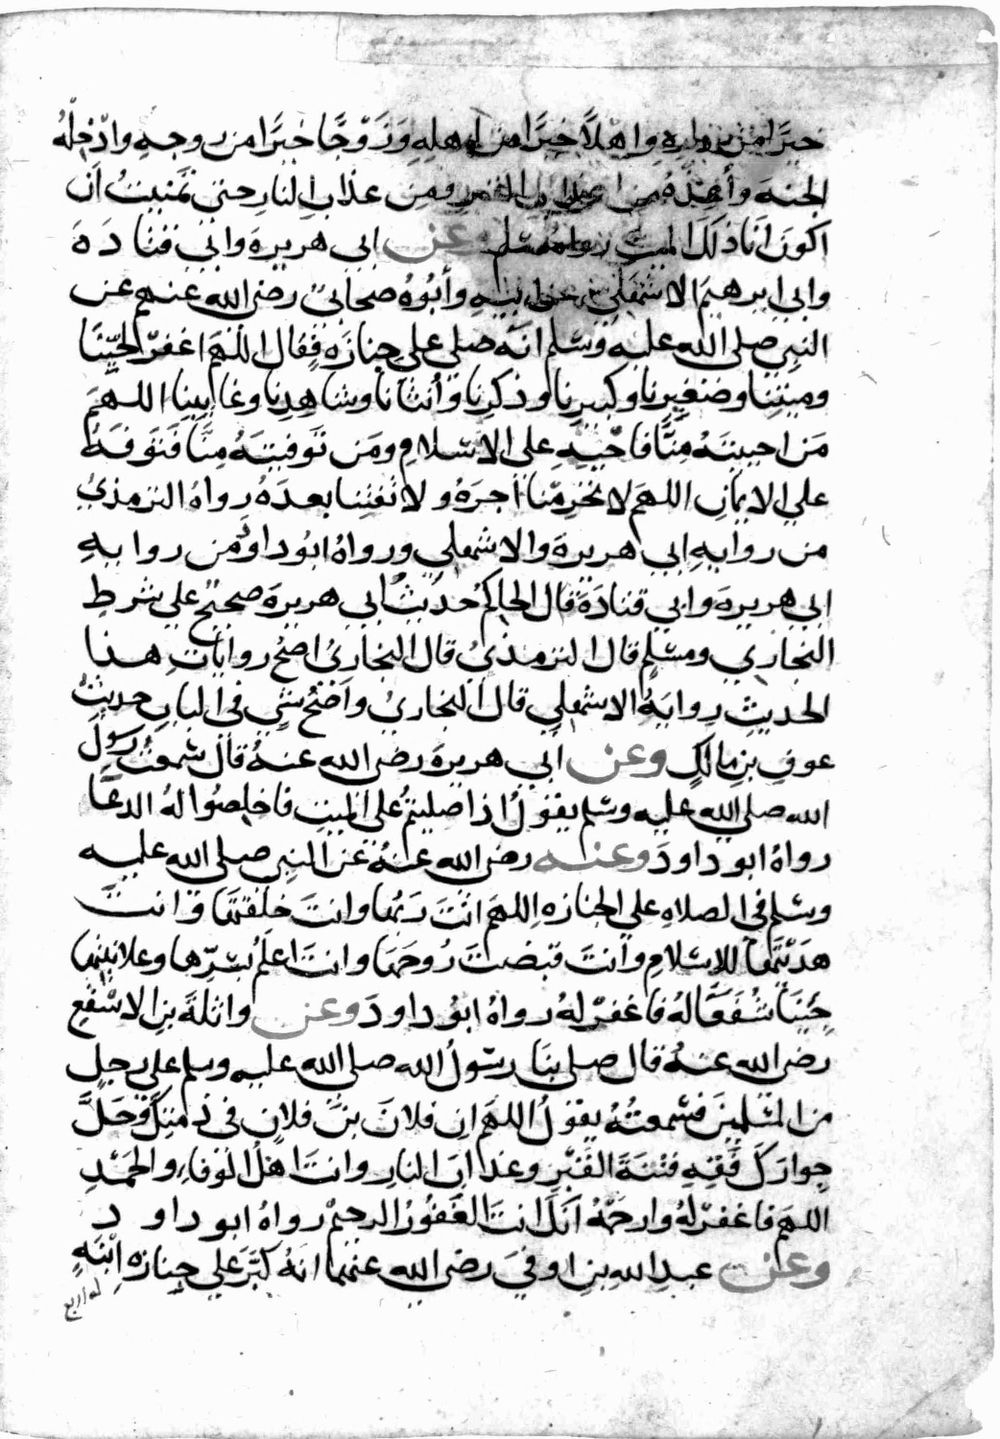 خيرًا من داره واهلًا خيرًا من اهله وزوجًا خيرًا من زوجه وادخله
الجنة وأعذه من عذاب القبر ومن عذاب النار حتى تمنيت أن
اكون انا ذلك الميت رواه مسلم وعن ابى هريرة وابى قتادة
وابى ابرهيم الاشهلى عن ابيه وأبوه صحابى رضى الله عنهم عن
النبى صلى الله عليه وسلم انه صلى على جنازه فقال اللهم اغفر لحينا
وميتنا وصغيرنا وكبيرنا وذكرنا وأنثانا وشاهدنا وغايبنا اللهم
من احييته منا فاحيه على الاسلام ومن توفيته منا فتوفه
على الايمان اللهم لا تحرمنا أجره ولا تفتنا بعده رواه الترمذى
من رواية ابى هريرة والاشهلى ورواه ابوداود من رواية
ابى هريرة وابى قتادة قال الحاكم حديث ابى هريرة صحيح على شرط
البخارى ومسلم قال الترمذى قال البخارى اصح روايات هذا
الحديث رواية الاشهلى قال البخارى واصح شى فى الباب حديث
عوف بن مالك وعن ابى هريرة رضى الله عنه قال سمعت رسول
الله صلى الله عليه وسلم يقول اذا صليتم على الميت فاخلصوا له الدعا
رواه ابو داود وعنه رضى الله عنه عن النبى صلى الله عليه
وسلم فى الصلاه على الجنازه اللهم انت ربها وانت خلقتها وانت
هديتها للاسلام وأنت قبضت روحها وانت اعلم بسرها وعلانيتها
جئنا شفعا له فاغفر له رواه ابو داود وعن واثلة بن الاسقع
رضى الله عنه قال صلى بنا رسول الله صلى الله عليه وسلم على رجل
من المسلمين فسمعته يقول اللهم ان فلان بن فلان فى ذمتك وحل
جوارك فقه فتنة القبر وعذاب النار وانت اهل الوفاء والحمد
اللهم فاغفر له وارحمه انك انت الغفور الرحيم رواه ابو داود
وعن عبد الله بن اوفى رضى الله عنهما انه كبر على جنازه ابنة
له اربع